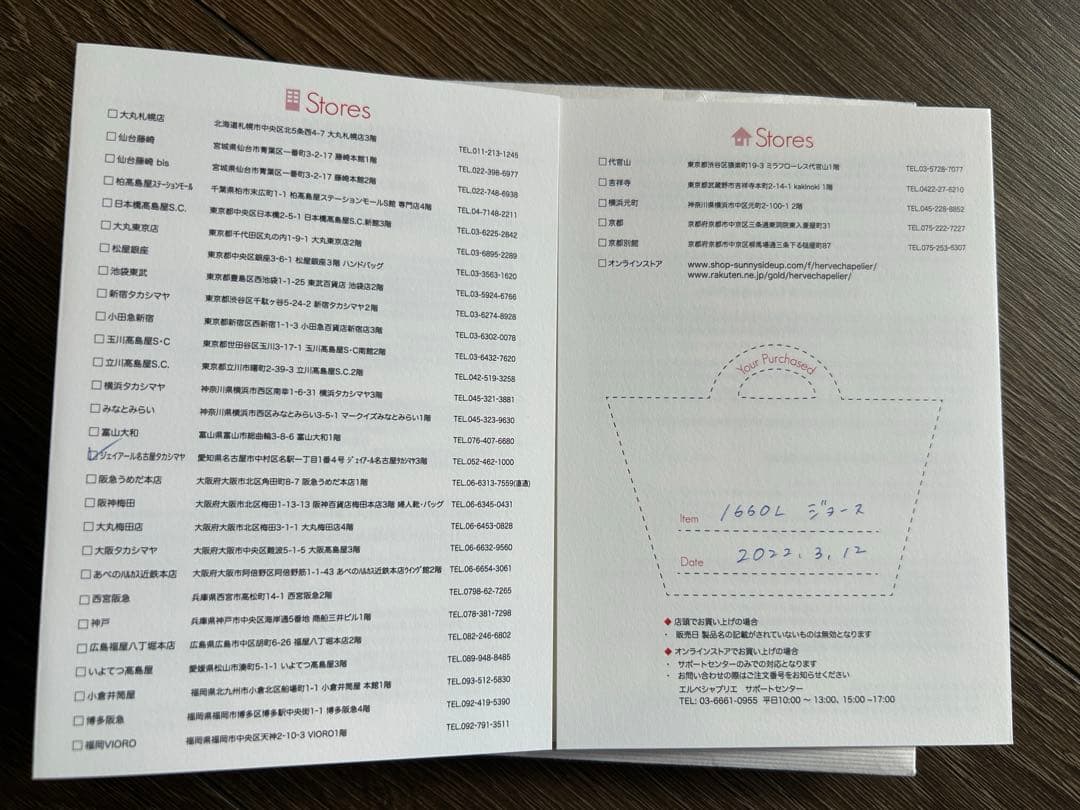 Stores
大丸札幌店 北海道札幌市中央区北5条西4-7 大丸札幌店3階 TEL.011-213-1245
仙台藤崎 宮城県仙台市青葉区一番町3-2-17 藤崎本館1階 TEL.022-398-6977
仙台藤崎 bis 宮城県仙台市青葉区一番町3-2-17 藤崎本館2階 TEL.022-748-6938
柏高島屋ステーションモール 千葉県柏市末広町1-1 柏高島屋ステーションモールS館 専門店4階 TEL.04-7148-2211
日本橋高島屋S.C. 東京都中央区日本橋2-5-1 日本橋高島屋S.C.新館3階 TEL.03-6225-2842
大丸東京店 東京都千代田区丸の内1-9-1 大丸東京店2階 TEL.03-6895-2289
松屋銀座 東京都中央区銀座3-6-1 松屋銀座3階 ハンドバッグ TEL.03-3563-1620
池袋東武 東京都豊島区西池袋1-1-25 東武百貨店 池袋店2階 TEL.03-5924-6766
新宿タカシマヤ 東京都渋谷区千駄ヶ谷5-24-2 新宿タカシマヤ2階 TEL.03-6274-8928
小田急新宿 東京都新宿区西新宿1-1-3 小田急百貨店新宿店3階 TEL.03-6302-0078
玉川高島屋S・C 東京都世田谷区玉川3-17-1 玉川高島屋S・C南館2階 TEL.03-6432-7620
立川高島屋S.C. 東京都立川市曙町2-39-3 立川高島屋S.C.2階 TEL.042-519-3258
横浜タカシマヤ 神奈川県横浜市西区南幸1-6-31 横浜タカシマヤ3階 TEL.045-321-3881
みなとみらい 神奈川県横浜市西区みなとみらい3-5-1 マークイズみなとみらい1階 TEL.045-323-9630
富山大和 富山県富山市総曲輪3-8-6 富山大和1階 TEL.076-407-6680
ジェイアール名古屋タカシマヤ 愛知県名古屋市中村区名駅一丁目1番4号 ジェイアール名古屋タカシマヤ3階 TEL.052-462-1000
阪急うめだ本店 大阪府大阪市北区角田町8-7 阪急うめだ本店1階 TEL.06-6313-7559(直通)
阪神梅田 大阪府大阪市北区梅田1-13-13 阪神百貨店梅田本店3階 婦人靴・バッグ TEL.06-6345-0431
大丸梅田店 大阪府大阪市北区梅田3-1-1 大丸梅田店4階 TEL.06-6453-0828
大阪タカシマヤ 大阪府大阪市中央区難波5-1-5 大阪高島屋3階 TEL.06-6632-9560
あべのハルカス近鉄本店 大阪府大阪市阿倍野区阿倍野筋1-1-43 あべのハルカス近鉄本店ウイング館2階 TEL.06-6654-3061
西宮阪急 兵庫県西宮市高松町14-1 西宮阪急2階 TEL.0798-62-7265
神戸 兵庫県神戸市中央区海岸通5番地 商船三井ビル1階 TEL.078-381-7298
広島福屋八丁堀本店 広島県広島市中区胡町6-26 福屋八丁堀本店2階 TEL.082-246-6802
いよてつ高島屋 愛媛県松山市湊町5-1-1 いよてつ高島屋3階 TEL.089-948-8485
小倉井筒屋 福岡県北九州市小倉北区船場町1-1 小倉井筒屋 本館1階 TEL.093-512-5830
博多阪急 福岡県福岡市博多区博多駅中央街1-1 博多阪急4階 TEL.092-419-5390
福岡VIORO 福岡県福岡市中央区天神2-10-3 VIORO1階 TEL.092-791-3511
Stores
代官山 東京都渋谷区猿楽町19-3 ミラフローレス代官山1階 TEL.03-5728-7077
吉祥寺 東京都武蔵野市吉祥寺本町2-14-1 kakinoki 1階 TEL.0422-27-6210
横浜元町 神奈川県横浜市中区元町2-100-1 2階 TEL.045-228-8852
京都 京都府京都市中京区三条通東洞院東入菱屋町31 TEL.075-222-7227
京都別館 京都府京都市中京区柳馬場通三条下る槌屋町87 TEL.075-253-6307
オンラインストア www.shop-sunnysideup.com/f/hervechapelier/
www.rakuten.ne.jp/gold/hervechapelier/
Your Purchased
Item 1660L ジョース
Date 2022.3.12
◆ 店頭でお買い上げの場合
・ 販売日 製品名の記載がされていないものは無効となります
◆ オンラインストアでお買い上げの場合
・ サポートセンターのみでの対応となります
・ お問い合わせの際はご注文番号をお知らせください
エルベシャプリエ サポートセンター
TEL: 03-6661-0955 平日10:00 〜 13:00、15:00 〜17:00